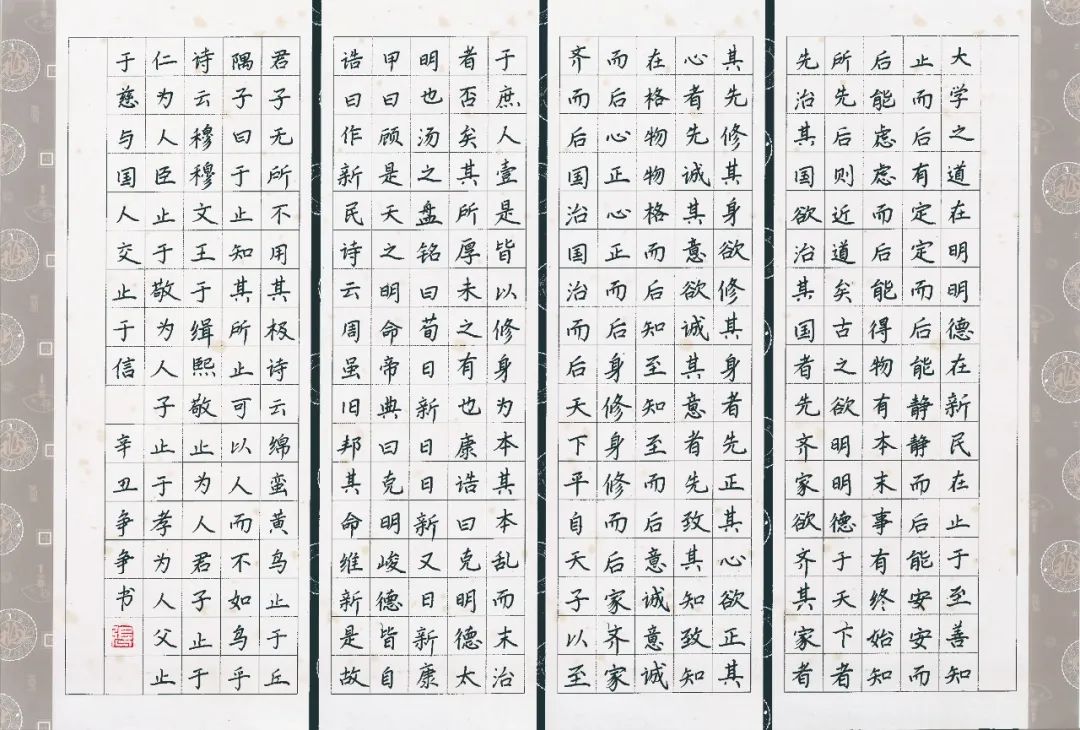 大学之道在明明德在新民在止于至善知
止而后有定定而后能静静而后能安安而
后能虑虑而后能得物有本末事有终始知
所先后则近道矣古之欲明明德于天下者
先治其国欲治其国者先齐家欲齐其家者
其先修其身欲修其身者先正其心欲正其
心者先诚其意欲诚其意者先致其知致知
在格物物格而后知至知至而后意诚意诚
而后心正心正而后身修身修而后家齐家
齐而后国治国治而后天下平自天子以至
于庶人壹是皆以修身为本其本乱而末治
者否矣其所厚未之有也康诰曰克明德太
明也汤之盘铭曰荀日新日日新又日新康
甲曰顾是天之明命帝典曰克明峻德皆自
诰曰作新民诗云周虽旧邦其命维新是故
君子无所不用其极诗云绵蛮黄鸟止于丘
隅子曰于止知其所止可以人而不如鸟乎
诗云穆穆文王于缉熙敬止为人君子止于
仁为人臣止于敬为人子止于孝为人父止
于慈与国人交止于信 辛丑争争书